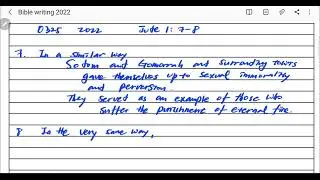 Bible writing 2022
0325 2022 Jute 1: 7-8
7. In a similar way
Sodom and Gomorrah and surrounding towns
gave themselves up to sexual immorality
and perversion.
They served as an example of those who
suffer the punishment of eternal fire.
8 In the very same way,